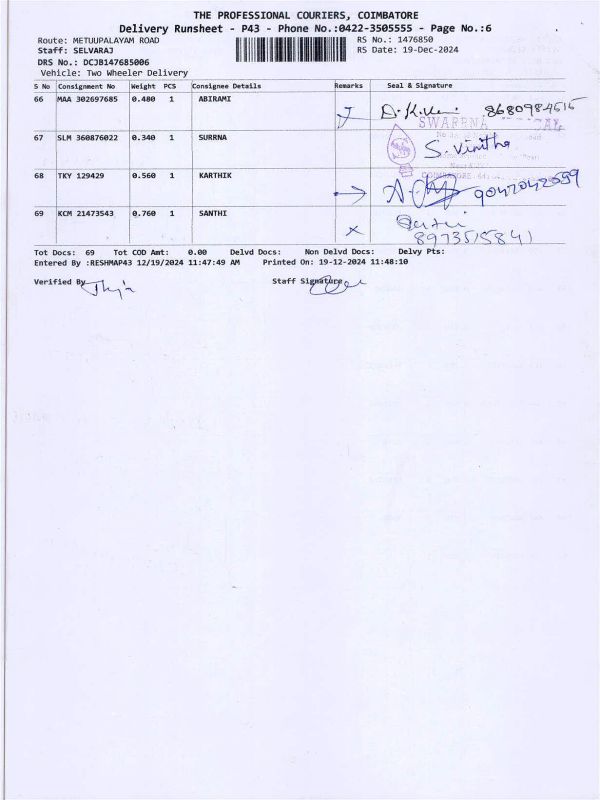 THE PROFESSIONAL COURIERS, COIMBATORE
Delivery Runsheet - P43 - Phone No.:0422-3505555 - Page No.:6
Route: METUUPALAYAM ROAD RS No.: 1476850
Staff: SELVARAJ RS Date: 19-Dec-2024
DRS No.: DCJB147685006
Vehicle: Two Wheeler Delivery
S No Consignment No Weight PCS Consignee Details Remarks Seal & Signature
66 MAA 302697685 0.480 1 ABIRAMI 8680984515
SWARRNA
67 SLM 360876022 0.340 1 SURRNA S. Vinitha
COIMBATORE
68 TKY 129429 0.560 1 KARTHIK 9047042599
69 KCM 21473543 0.760 1 SANTHI
8973515841
Tot Docs: 69 Tot COD Amt: 0.00 Delvd Docs: Non Delvd Docs: Delvy Pts:
Entered By :RESHMAP43 12/19/2024 11:47:49 AM Printed On: 19-12-2024 11:48:10
Verified By Staff Signature